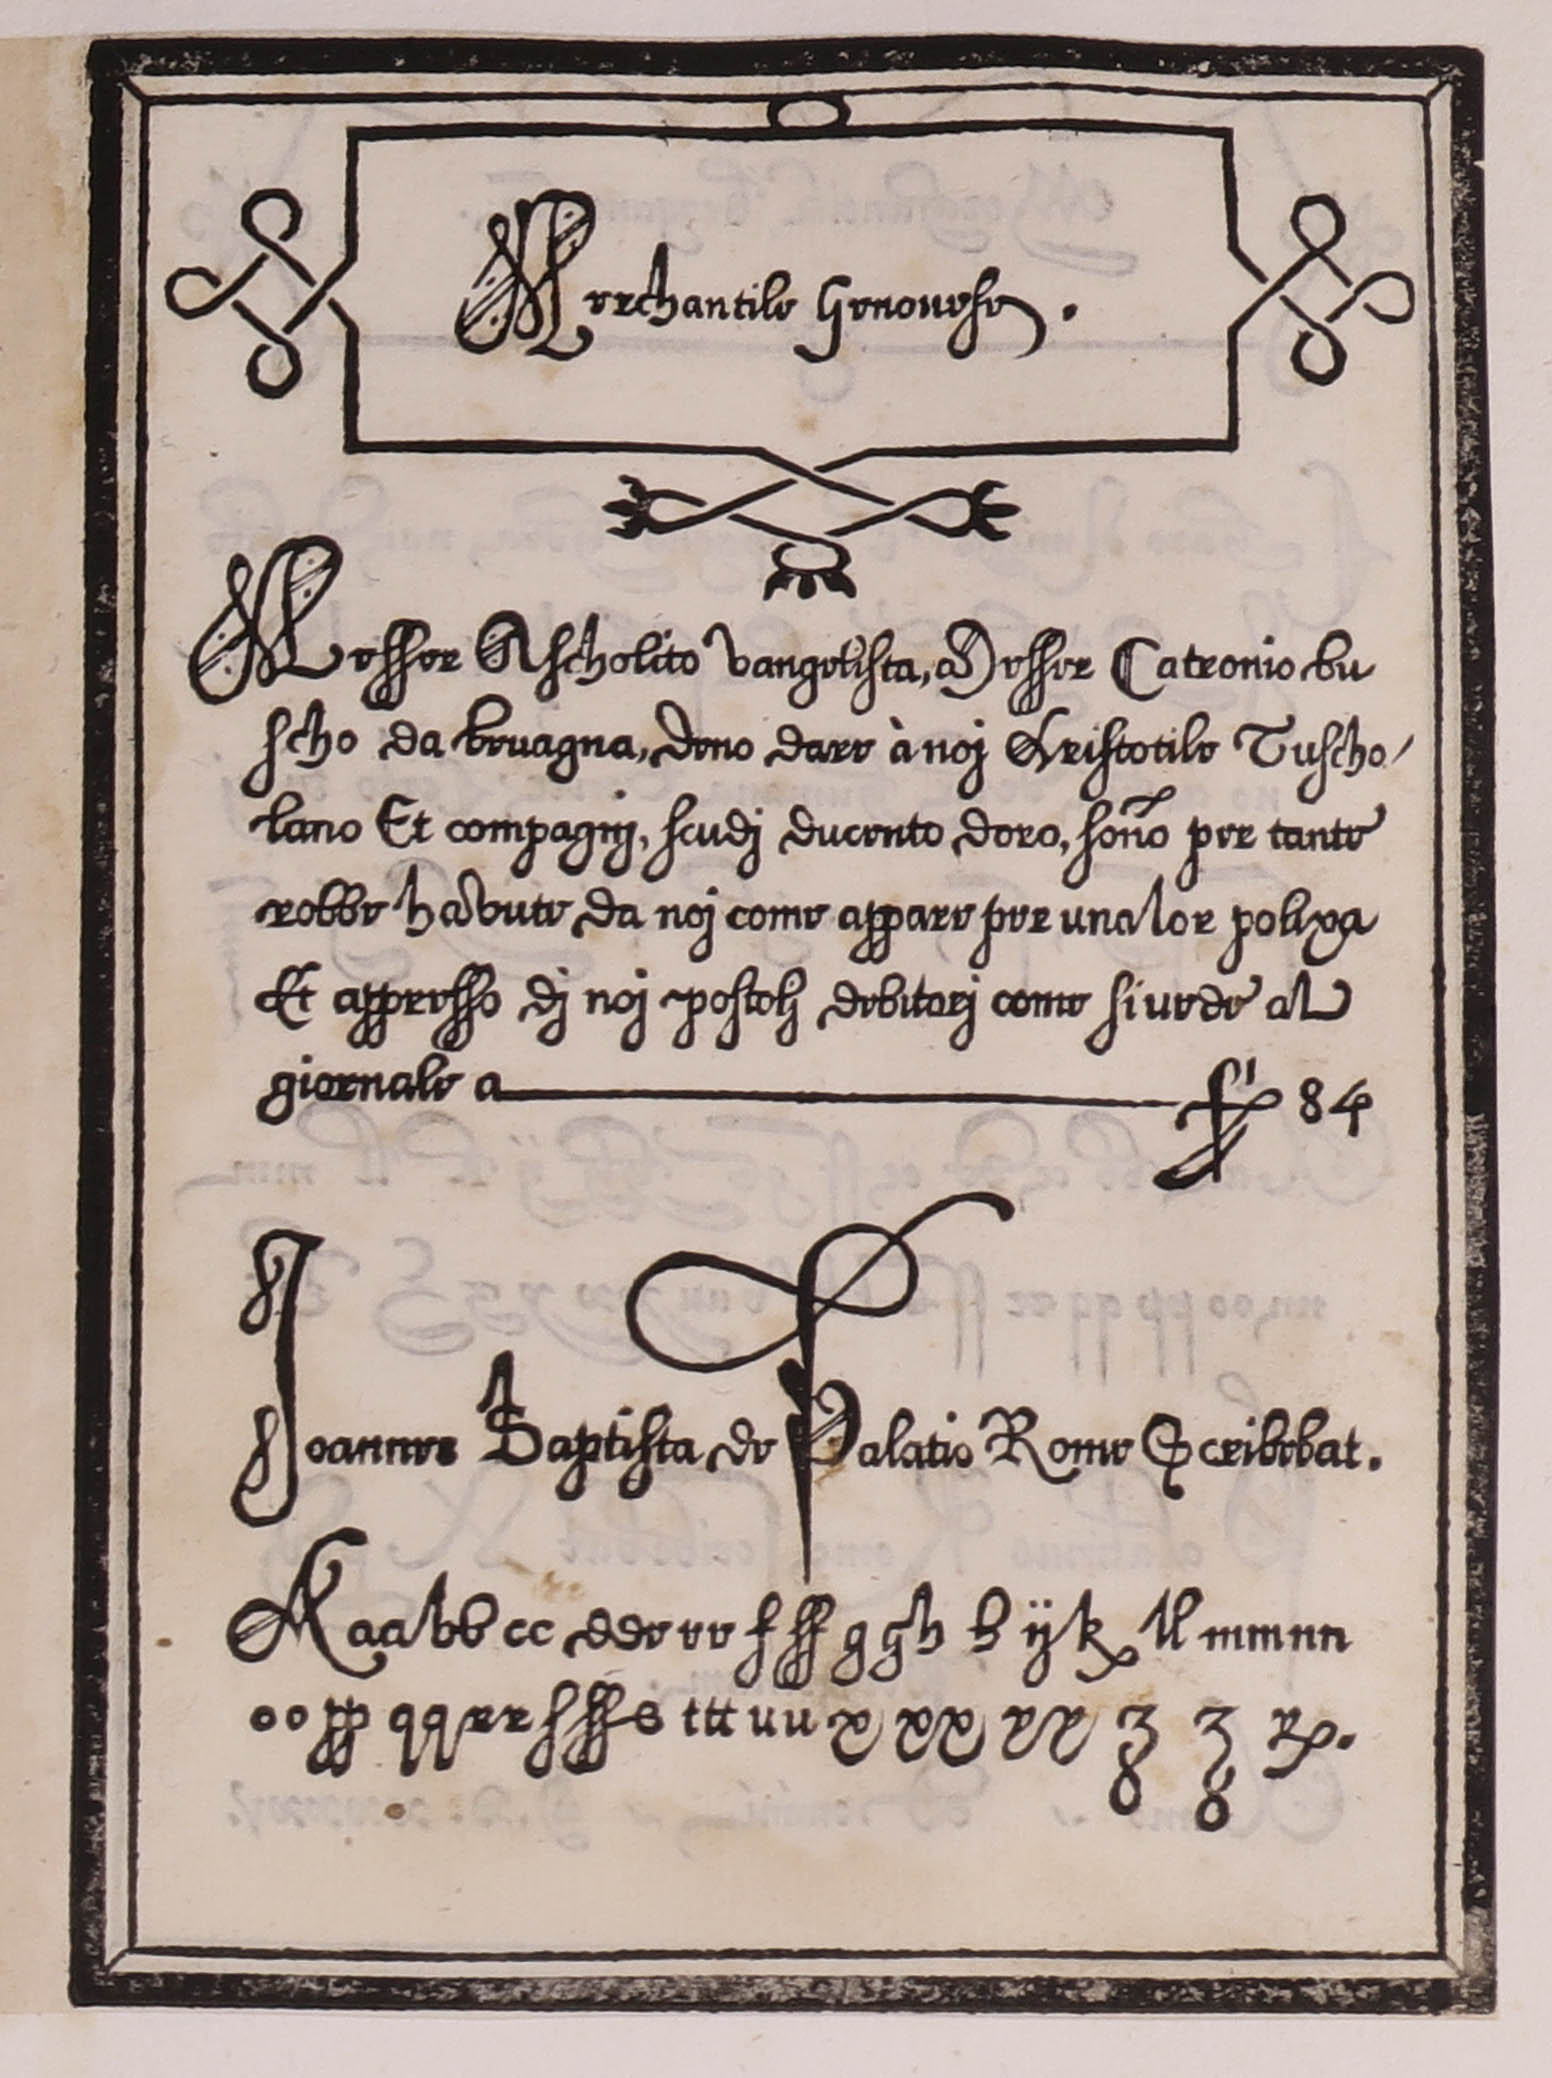 Merchantile Genouese.
Messer Ascholito Vangelista, a Messer Catronio bu
scho da beuagna, deno dare à noj Aristotile Tuscho/
lano Et compagnj, scudj ducento doro, sono per tante
robbe habute da noj come appare per una lor polixa
Et appresso dj noj postolj debitorj come si uede al
giornale a 84
Joannes Baptista de Palatio Rome Scribebat.
A a a b b c c d d e e e f ff g g h h ij k ll m m n n
o o pp q q r r ſ ſſ s t tt u u x x x y y z z &.